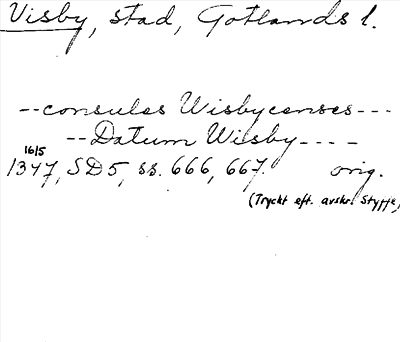 Visby, stad, Gotlands l.
--consules Wisbycenses---
--Datum Wisby----
16/5
1347, SD5, ss. 666, 667. orig.
(Tryckt eft. avskr. Styffe)